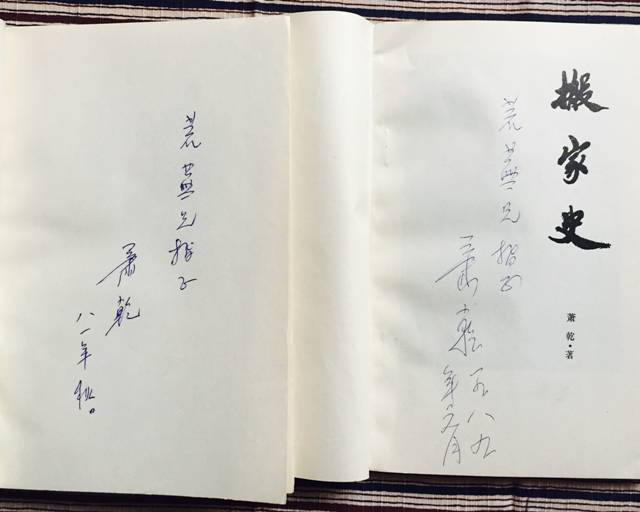 荒蕪兄指正
萧乾
八一年秋。
搬家史
萧乾·著
荒蕪兄指正
萧乾
一九八九
年元月